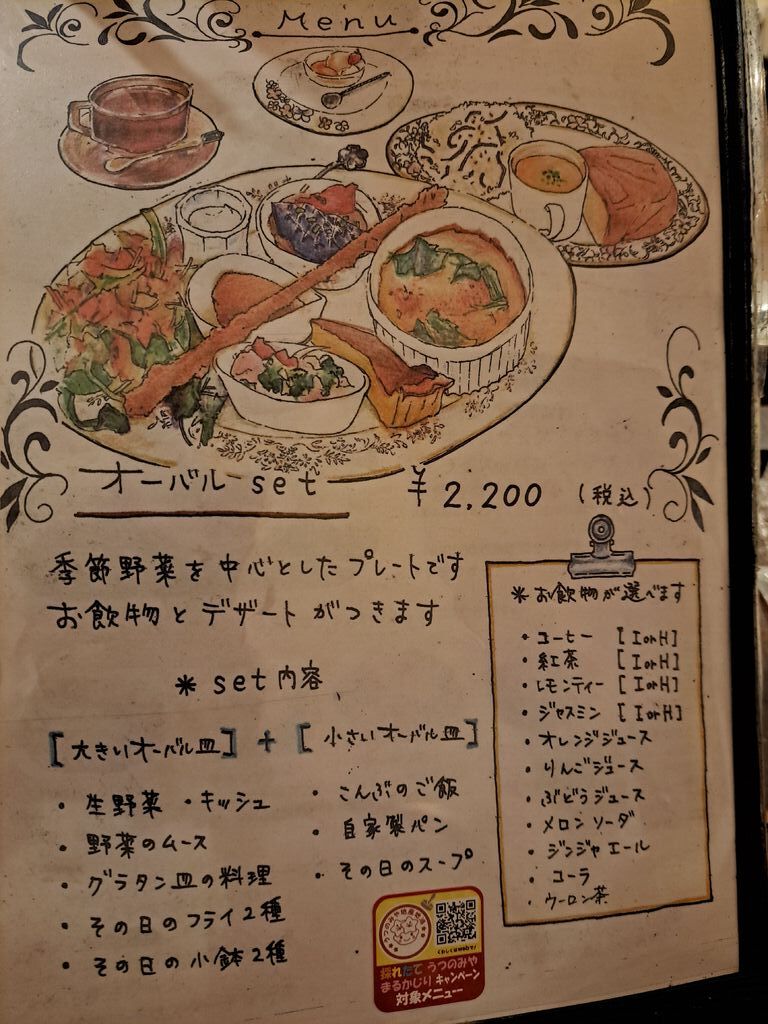 Menu
オーバル set ¥2,200 (税込)
季節野菜を中心としたプレートです
お飲物とデザートがつきます
* set内容
[大きいオーバル皿] + [小さいオーバル皿]
・生野菜 ・キッシュ
・野菜のムース
・グラタン皿の料理
・その日のフライ2種
・その日の小鉢2種
・こんぶのご飯
・自家製パン
・その日のスープ
* お飲物が選べます
・コーヒー [I or H]
・紅茶 [I or H]
・レモンティー [I or H]
・ジャスミン [I or H]
・オレンジジュース
・りんごジュース
・ぶどうジュース
・メロンソーダ
・ジンジャエール
・コーラ
・ウーロン茶
採れたて うつのみや
まるかじり キャンペーン
対象メニュー